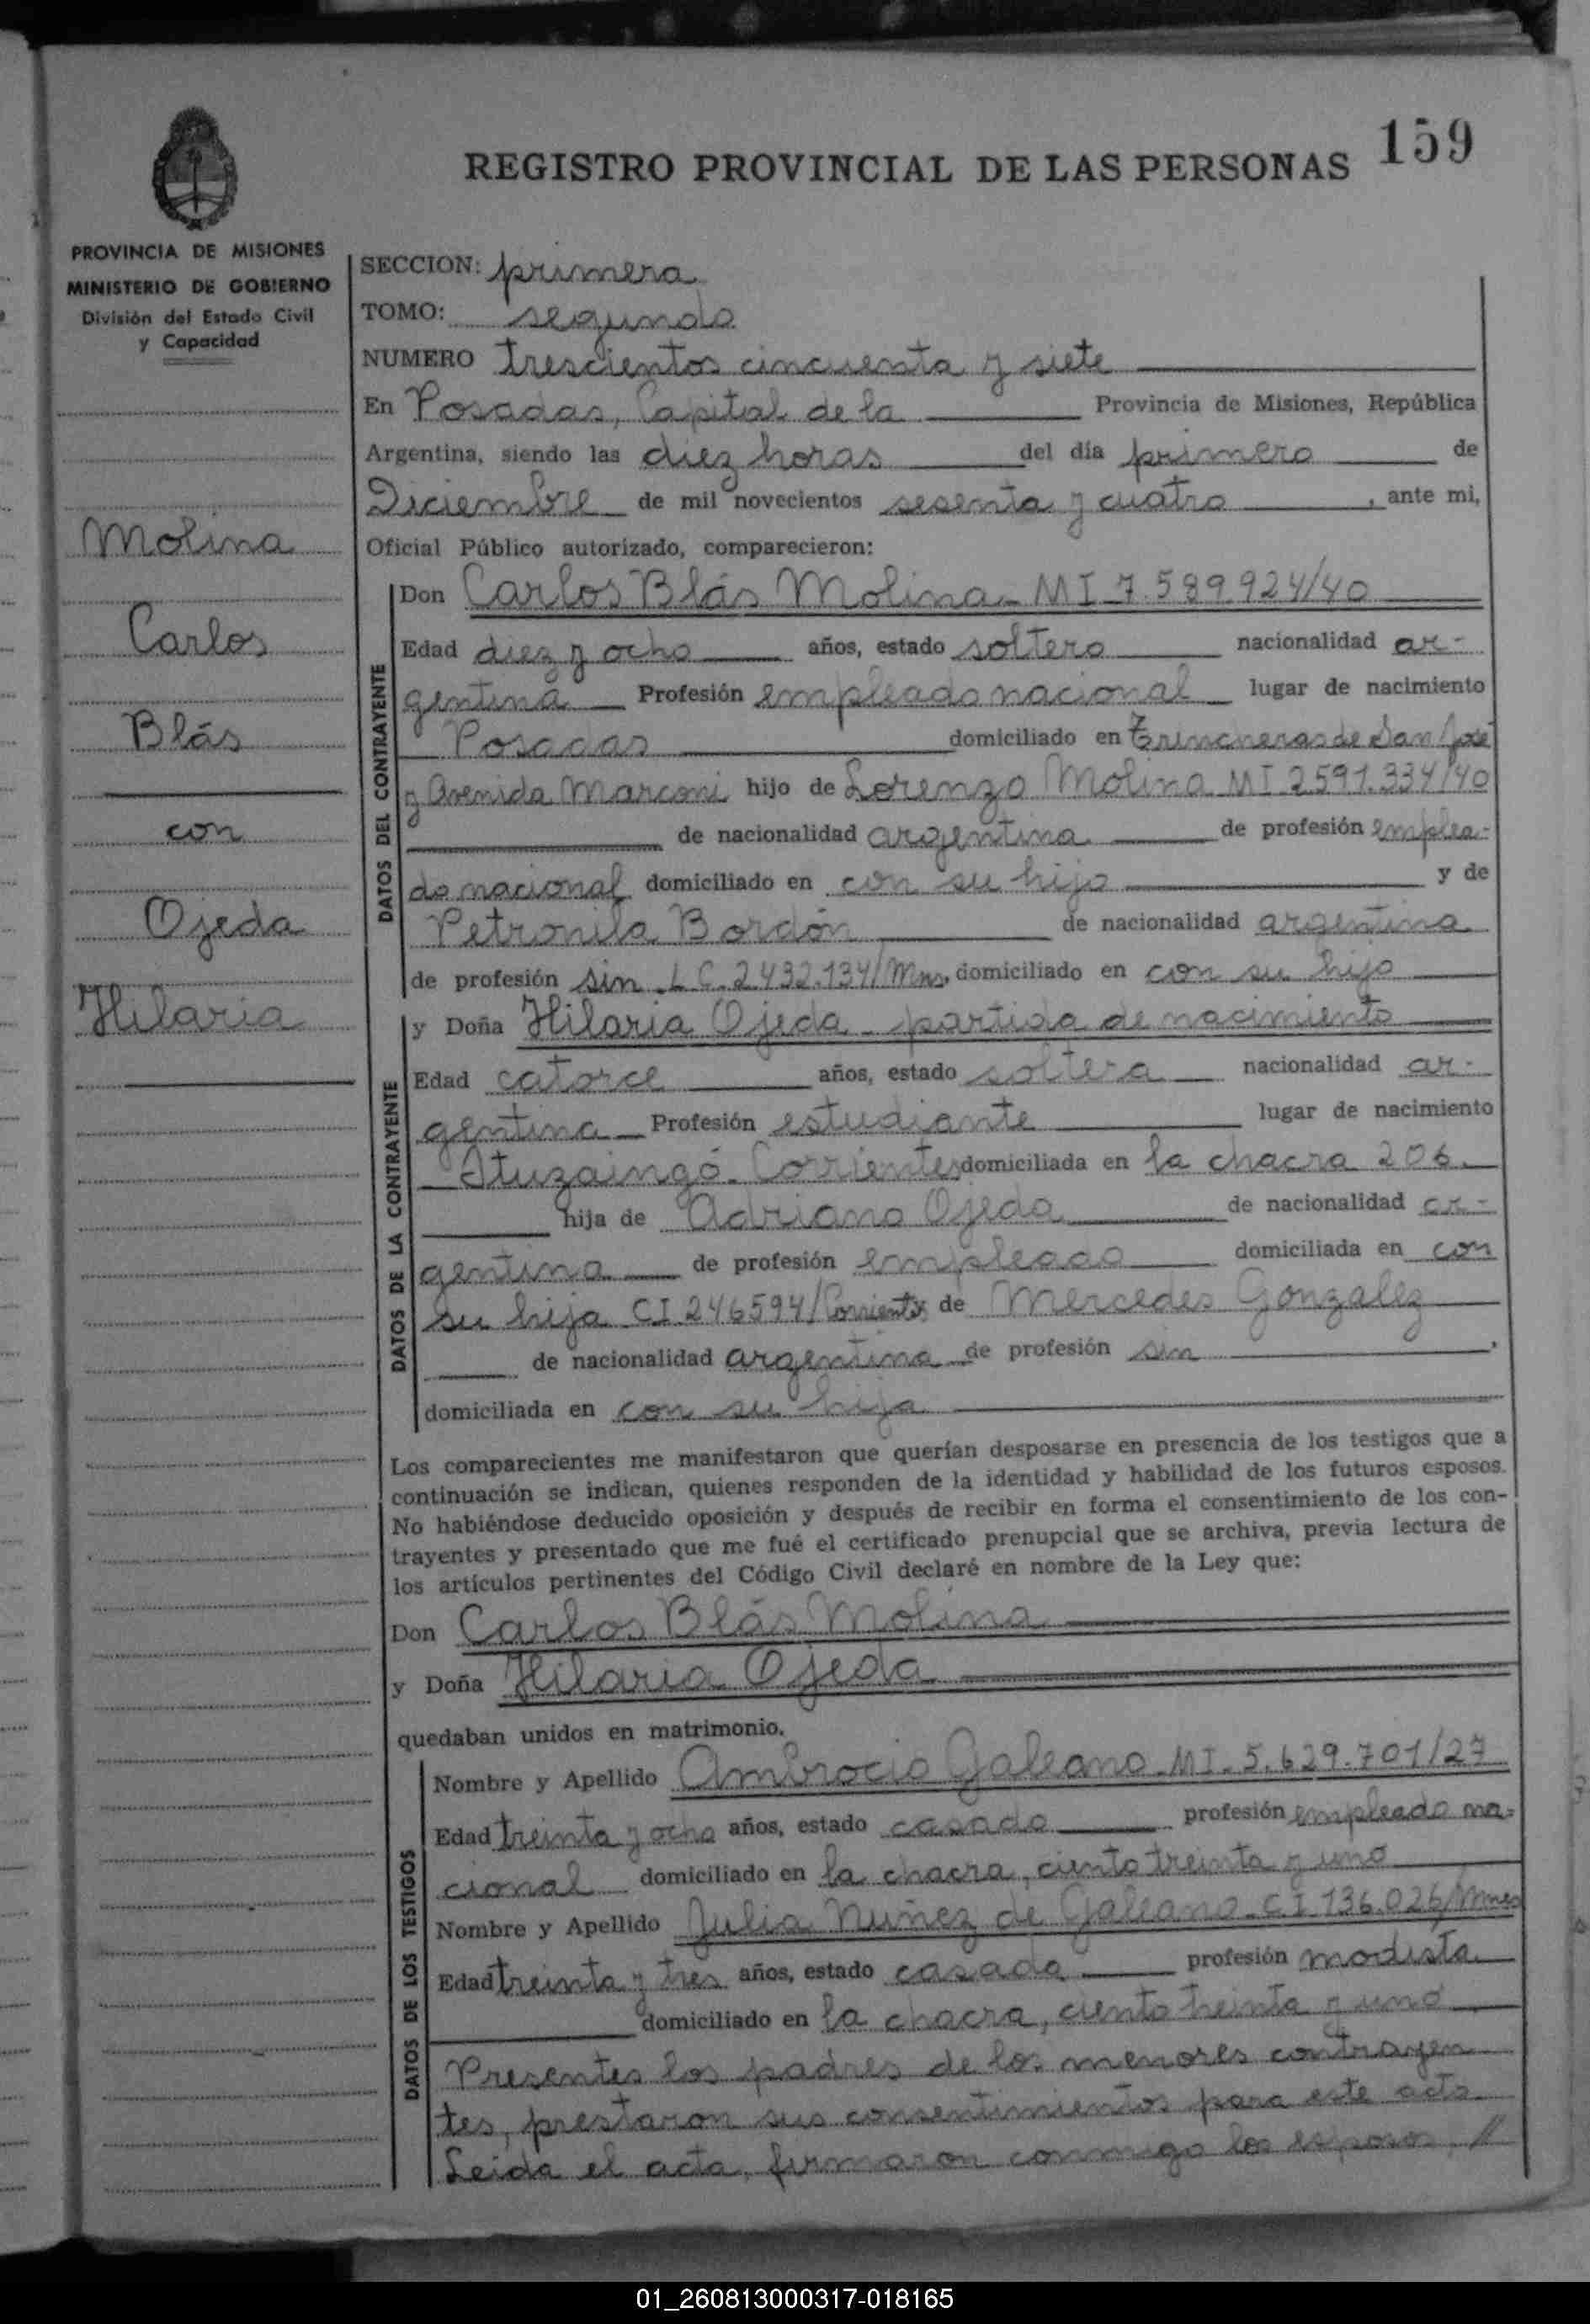 159
REGISTRO PROVINCIAL DE LAS PERSONAS
PROVINCIA DE MISIONES
MINISTERIO DE GOBIERNO
División del Estado Civil
y Capacidad
Molina
Carlos
Blás
con
Ojeda
Hilaria
SECCION: primera
TOMO: segundo
NUMERO trescientos cincuenta y siete
En Posadas, Capital de la Provincia de Misiones, República
Argentina, siendo las diez horas del día primero de
Diciembre de mil novecientos sesenta y cuatro, ante mi,
Oficial Público autorizado, comparecieron:
DATOS DEL CONTRAYENTE
Don Carlos Blás Molina - MI 7.589.924/40
Edad diez y ocho años, estado soltero nacionalidad ar-
gentina Profesión empleado nacional lugar de nacimiento
Posadas domiciliado en Trincheras de San José
y Avenida Marconi hijo de Lorenzo Molina MI 2591.334/40
de nacionalidad argentina de profesión emplea-
do nacional domiciliado en con su hijo y de
Petronila Bordón de nacionalidad argentina
de profesión sin. L C. 2.432.134/Mns, domiciliado en con su hijo
DATOS DE LA CONTRAYENTE
y Doña Hilaria Ojeda - partida de nacimiento
Edad catorce años, estado soltera nacionalidad ar-
gentina Profesión estudiante lugar de nacimiento
Ituzaingó. Corrientes domiciliada en la chacra 206.
hija de Adriano Ojeda de nacionalidad ar-
gentina de profesión empleado domiciliada en con
su hija CI 246594/Corrientes y de Mercedes Gonzalez
de nacionalidad argentina de profesión sin.
domiciliada en con su hija
Los comparecientes me manifestaron que querían desposarse en presencia de los testigos que a
continuación se indican, quienes responden de la identidad y habilidad de los futuros esposos.
No habiéndose deducido oposición y después de recibir en forma el consentimiento de los con-
trayentes y presentado que me fué el certificado prenupcial que se archiva, previa lectura de
los artículos pertinentes del Código Civil declaré en nombre de la Ley que:
Don Carlos Blás Molina
y Doña Hilaria Ojeda
quedaban unidos en matrimonio.
DATOS DE LOS TESTIGOS
Nombre y Apellido Ambrocio Galeano - MI - 5.629.701/27
Edad treinta y ocho años, estado casado profesión empleado na-
cional domiciliado en la chacra, ciento treinta y uno
Nombre y Apellido Julia Nuñez de Galeano - C I 136.026/Mnes
Edad treinta y tres años, estado casada profesión modista
domiciliado en la chacra, ciento treinta y uno
Presentes los padres de los menores contrayen
tes, prestaron sus consentimientos para este acto.
Leida el acta, firmaron conmigo los esposos, //
01_260813000317-018165